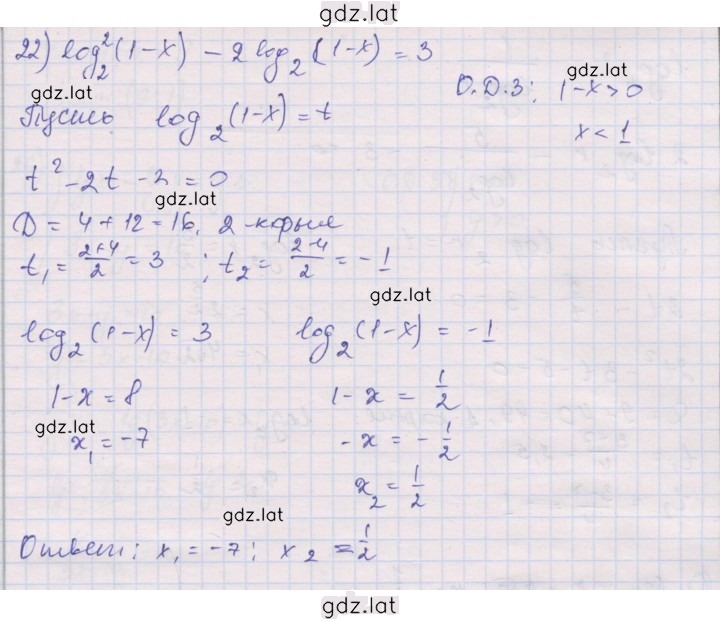 gdz.lat
22) log₂²(1-x) - 2log₂(1-x) = 3
gdz.lat
О.Д.З: 1-x>0
gdz.lat
Пусть log₂(1-x) = t
x < 1
t² - 2t - 3 = 0
gdz.lat
D = 4 + 12 = 16, 2 - корня
t₁ = (2+4)/2 = 3 ; t₂ = (2-4)/2 = -1
gdz.lat
log₂(1-x) = 3 log₂(1-x) = -1
1-x = 8 1-x = 1/2
gdz.lat
x₁ = -7 -x = -1/2
x₂ = 1/2
gdz.lat
Ответ: x₁ = -7; x₂ = 1/2
gdz.lat